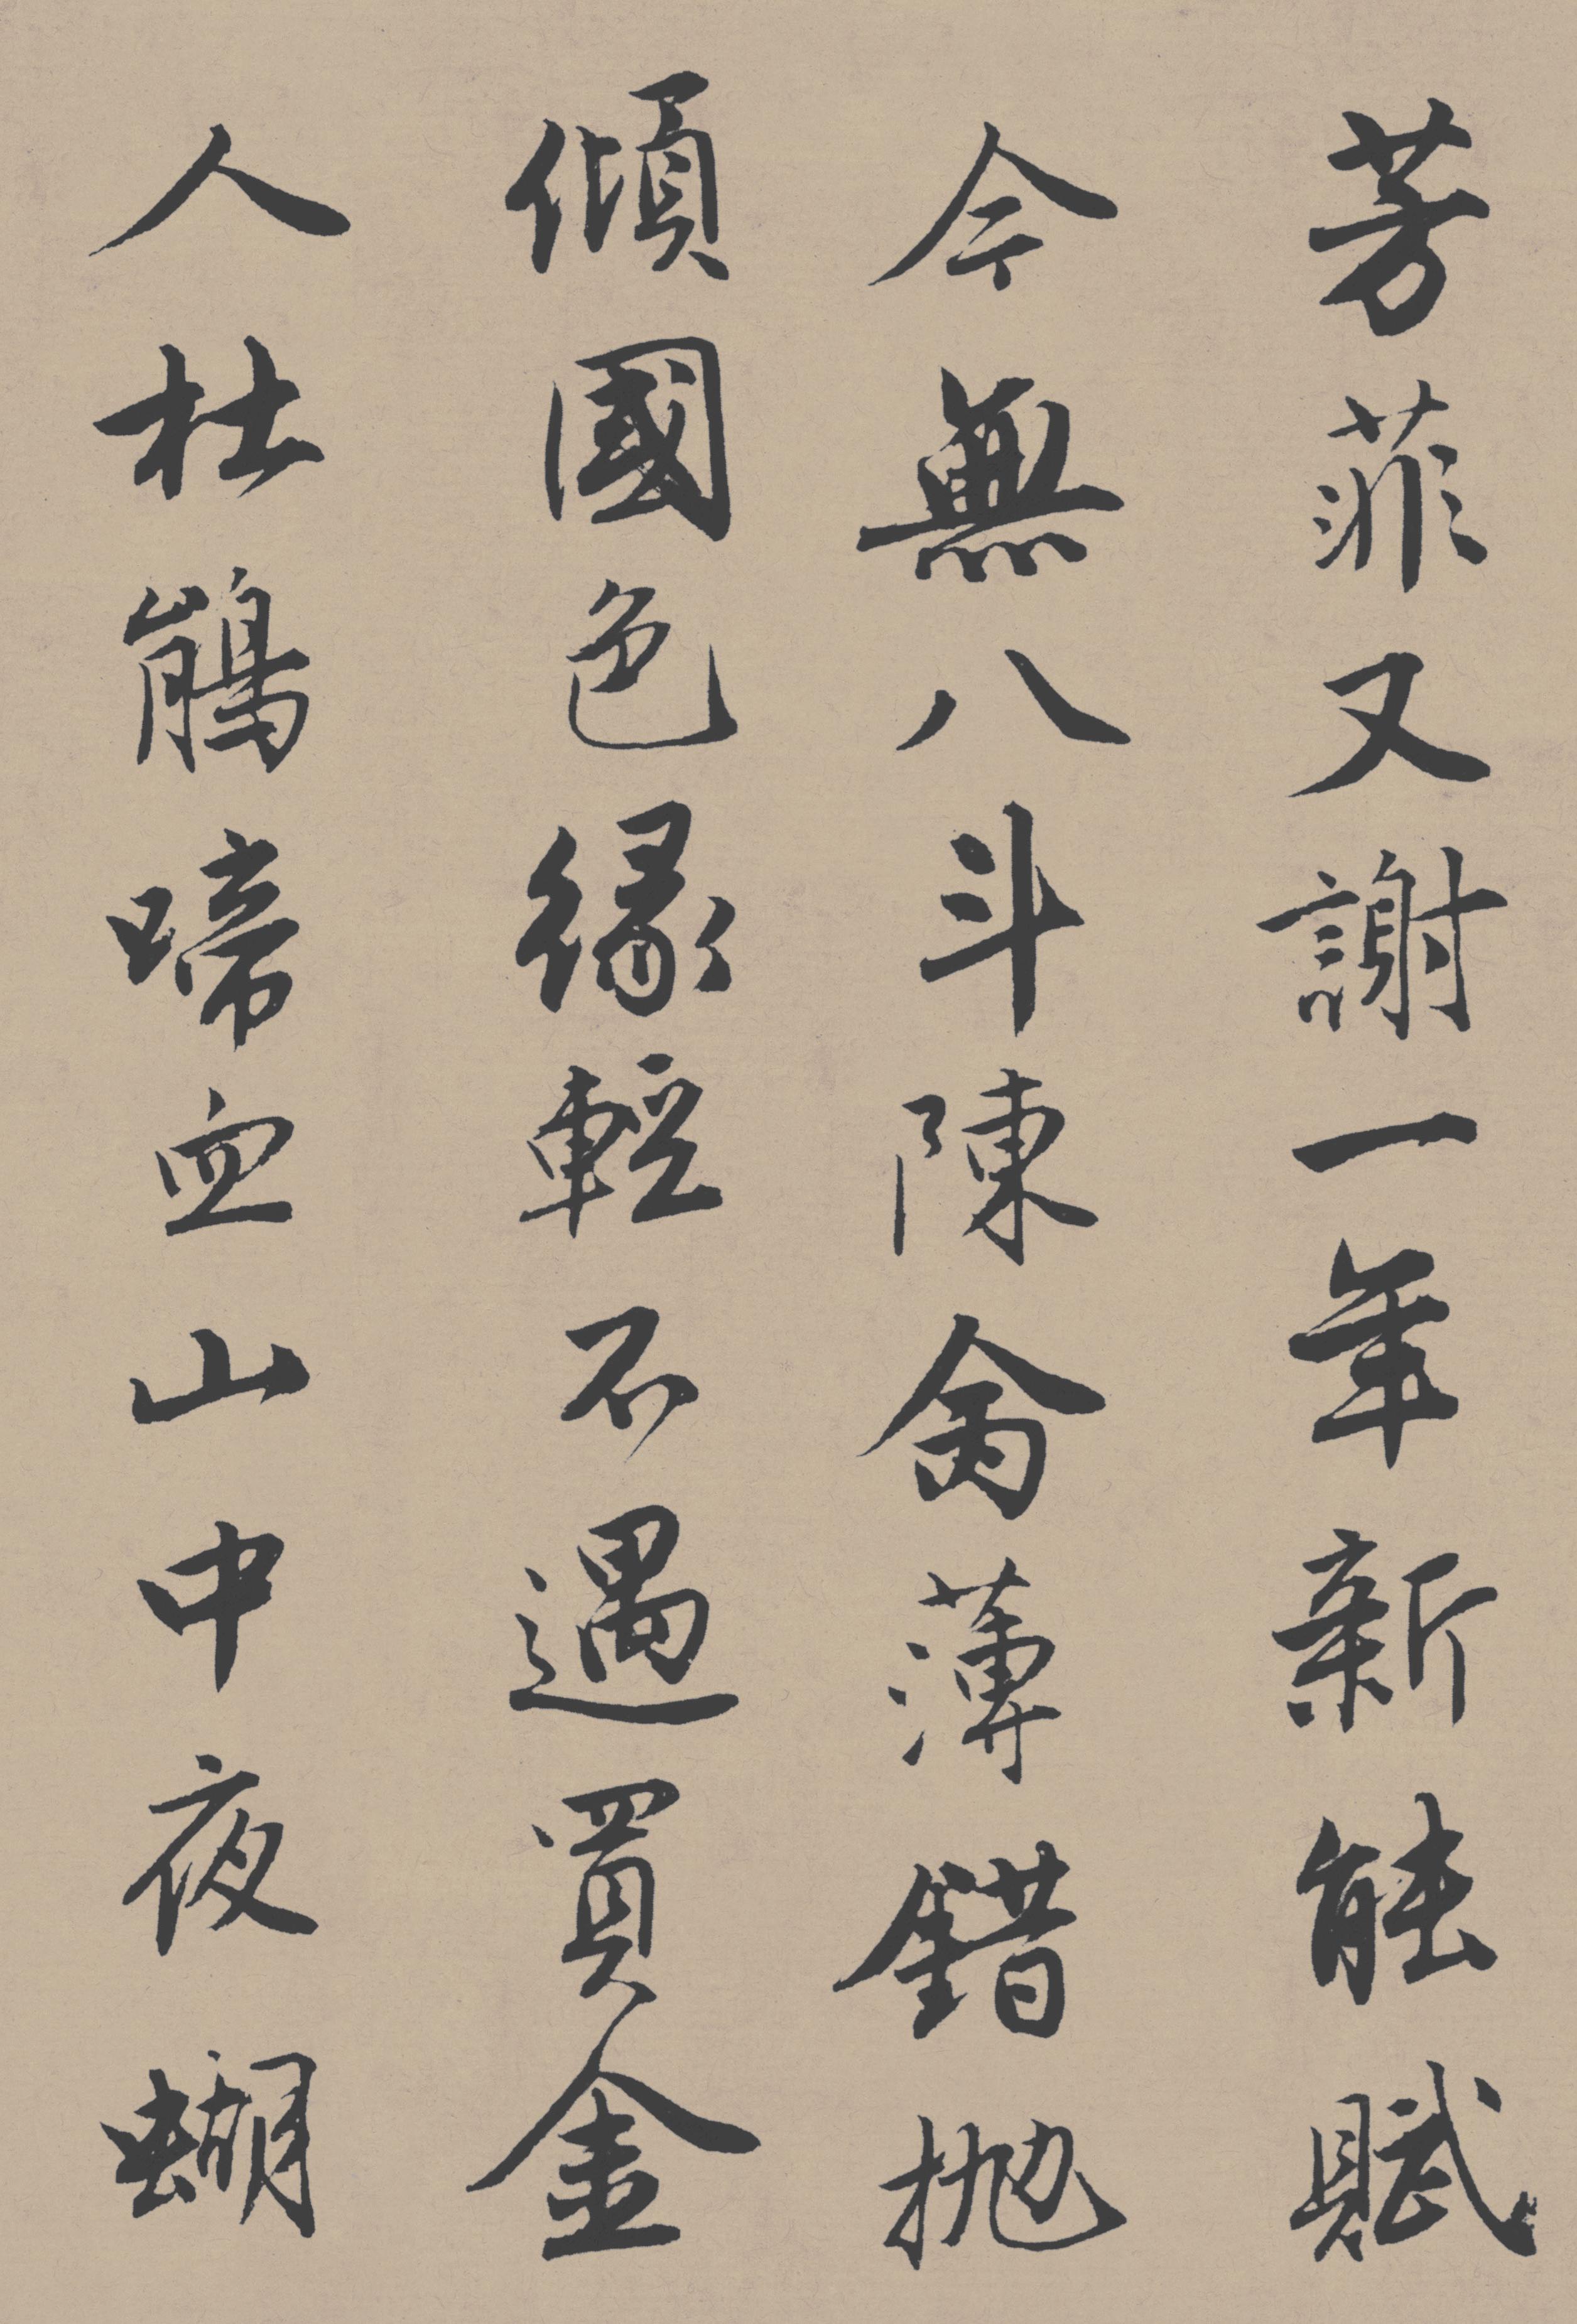 芳菲又謝一年新能賦
今無八斗陳禽薄錯抛
傾國色緣輕不遇買金
人杜鵑啼血山中夜蝴